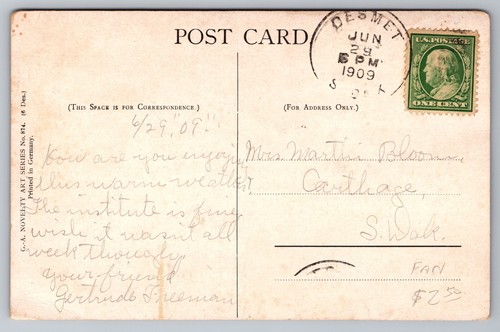 POST CARD
DESMET
JUN
29
6 PM
1909
S. DAK
U.S. POSTAGE
ONE CENT
(THIS SPACE IS FOR CORRESPONDENCE.)
(FOR ADDRESS ONLY.)
G.-A. NOVELTY ART SERIES No. 874. (6 Des.)
Printed in Germany.
6/29 "09"
How are you enjoying
this warm weather,
The institute is fine,
wish it wasn't all
week though,
your friend
Gertrude Freeman
Mrs. Martin Bloom
Carthage,
S. Dak.
FAN
$2.50